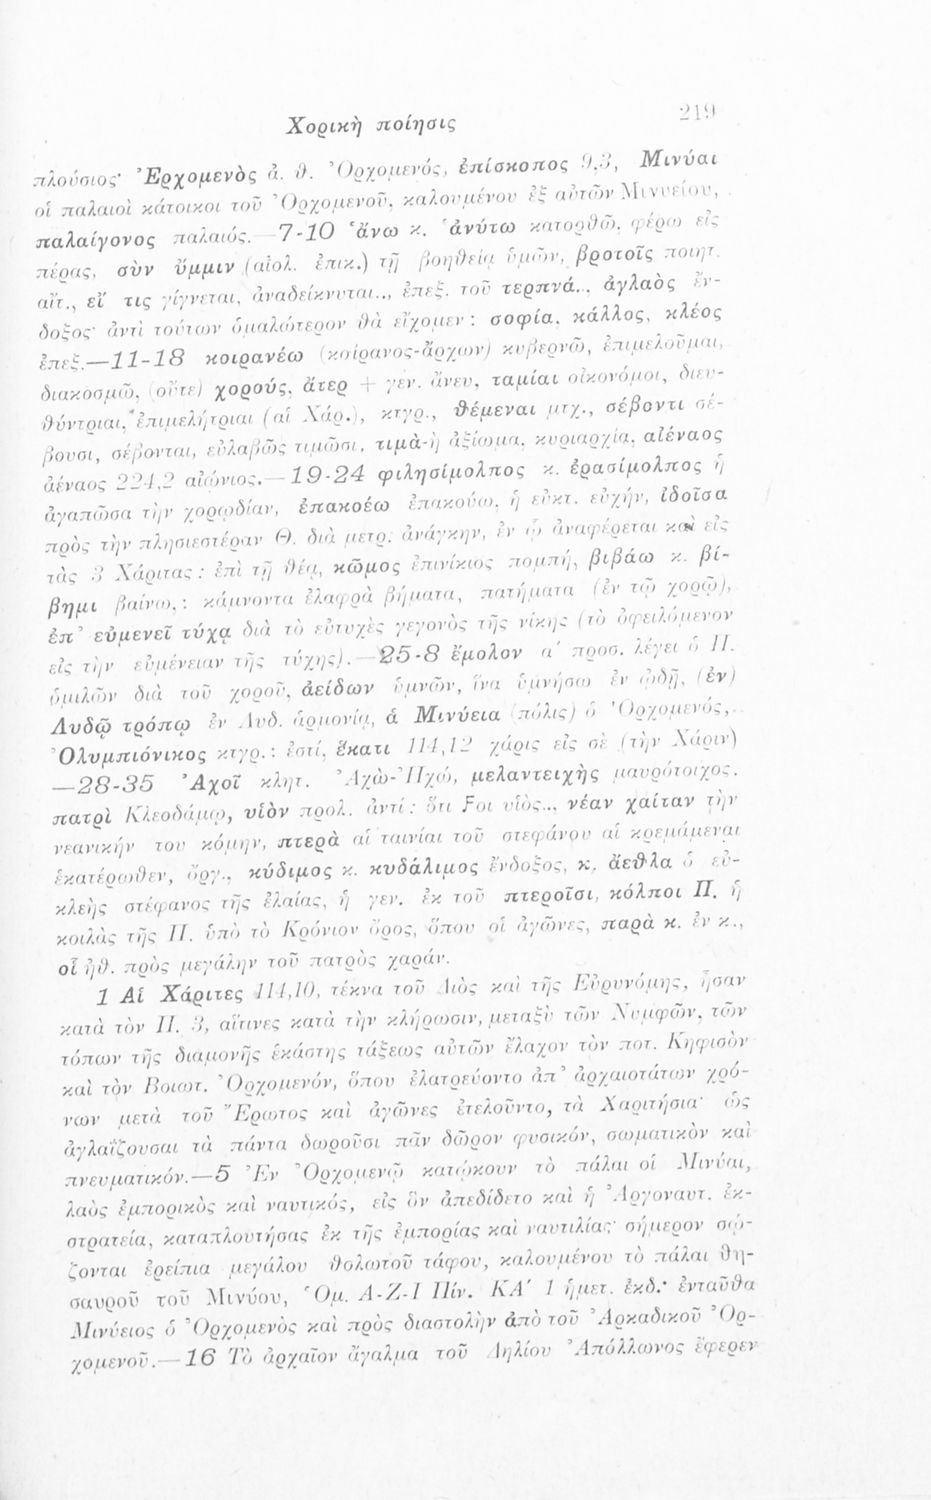 Χορικὴ ποίησις
219
πλούσιος· Ἐρχομενὸς ἀ. θ. Ὀρχομενός, ἐπίσκοπος 9,3, Μινύαι
οἱ παλαιοὶ κάτοικοι τοῦ Ὀρχομενοῦ, καλουμένου ἐξ αὐτῶν Μινυείου,
παλαίγονος παλαιός.—7-10 ἄνω κ. ἀνύτω κατορθῶ, φέρω εἰς
πέρας, σὺν ὔμμιν (αἰολ. ἐπικ.) τῇ βοηθείᾳ ὑμῶν, βροτοῖς ποιητ.
αἴτ., εἴ τις γίγνεται, ἀναδείκνυται.., ἐπεξ. τοῦ τερπνά.., ἀγλαὸς ἔν-
δοξος· ἀντὶ τούτων ὁμαλώτερον θὰ εἴχομεν: σοφία, κάλλος, κλέος
ἐπεξ.—11-18 κοιρανέω (κοίρανος-ἄρχων) κυβερνῶ, ἐπιμελοῦμαι,
διακοσμῶ, (οὔτε) χορούς, ἄτερ + γεν. ἄνευ, ταμίαι οἰκονόμοι, διευ-
θύντριαι, ἐπιμελήτριαι (αἱ Χάρ.), κτγρ., θέμεναι μτχ., σέβοντι σέ-
βουσι, σέβονται, εὐλαβῶς τιμῶσι, τιμὰ-ὴ ἀξίωμα, κυριαρχία, αἰέναος
ἀέναος 224,2 αἰώνιος.—19-24 φιλησίμολπος κ. ἐρασίμολπος ἡ
ἀγαπῶσα τὴν χορῳδίαν, ἐπακοέω ἐπακούω, ἡ εὐκτ. εὐχήν, ἰδοῖσα
πρὸς τὴν πλησιεστέραν Θ. διὰ μετρ. ἀνάγκην, ἐν ᾧ ἀναφέρεται καὶ εἰς
τὰς 3 Χάριτας: ἐπὶ τῇ θέᾳ, κῶμος ἐπινίκιος πομπή, βιβάω κ. βί-
βημι βαίνω,: κάμνοντα ἐλαφρὰ βήματα, πατήματα (ἐν τῷ χορῷ),
ἐπ' εὐμενεῖ τύχᾳ διὰ τὸ εὐτυχὲς γεγονὸς τῆς νίκης (τὸ ὀφειλόμενον
εἰς τὴν εὐμένειαν τῆς τύχης).—25-8 ἔμολον α' προσ. λέγει ὁ Π.
ὁμιλῶν διὰ τοῦ χοροῦ, ἀείδων ὑμνῶν, ἵνα ὑμνήσω ἐν ᾠδῇ, (ἐν)
Λυδῷ τρόπῳ ἐν Λυδ. ἁρμονίᾳ, ἁ Μινύεια (πόλις) ὁ Ὀρχομενός,
Ὀλυμπιόνικος κτγρ.: ἐστί, ἕκατι 114,12 χάρις εἰς σὲ (τὴν Χάριν)
—28-35 Ἀχοῖ κλητ. Ἀχὼ-Ἠχώ, μελαντειχὴς μαυρότοιχος,
πατρὶ Κλεοδάμῳ, υἱὸν προλ. ἀντί: ὅτι Ϝοι υἱὸς.., νέαν χαίταν τὴν
νεανικήν του κόμην, πτερὰ αἱ ταινίαι τοῦ στεφάνου αἱ κρεμάμεναι
ἑκατέρωθεν, ὀργ., κύδιμος κ. κυδάλιμος ἔνδοξος, κ. ἄεθλα ὁ εὐ-
κλεὴς στέφανος τῆς ἐλαίας, ἡ γεν. ἐκ τοῦ πτεροῖσι, κόλποι Π. ἡ
κοιλὰς τῆς Π. ὑπὸ τὸ Κρόνιον ὄρος, ὅπου οἱ ἀγῶνες, παρὰ κ. ἐν κ.,
οἷ ἠθ. πρὸς μεγάλην τοῦ πατρὸς χαράν.
1 Αἱ Χάριτες 114,10, τέκνα τοῦ Διὸς καὶ τῆς Εὐρυνόμης, ἦσαν
κατὰ τὸν Π. 3, αἵτινες κατὰ τὴν κλήρωσιν, μεταξὺ τῶν Νυμφῶν, τῶν
τόπων τῆς διαμονῆς ἑκάστης τάξεως αὐτῶν ἔλαχον τὸν ποτ. Κηφισὸν
καὶ τὸν Βοιωτ. Ὀρχομενόν, ὅπου ἐλατρεύοντο ἀπ' ἀρχαιοτάτων χρό-
νων μετὰ τοῦ Ἔρωτος καὶ ἀγῶνες ἐτελοῦντο, τὰ Χαριτήσια· ὡς
ἀγλαΐζουσαι τὰ πάντα δωροῦσι πᾶν δῶρον φυσικόν, σωματικὸν καὶ
πνευματικόν.—5 Ἐν Ὀρχομενῷ κατῴκουν τὸ πάλαι οἱ Μινύαι,
λαὸς ἐμπορικὸς καὶ ναυτικός, εἰς ὃν ἀπεδίδετο καὶ ἡ Ἀργοναυτ. ἐκ-
στρατεία, καταπλουτήσας ἐκ τῆς ἐμπορίας καὶ ναυτιλίας· σήμερον σῴ-
ζονται ἐρείπια μεγάλου θολωτοῦ τάφου, καλουμένου τὸ πάλαι θη-
σαυροῦ τοῦ Μινύου, Ὁμ. Α-Ζ-Ι Πίν. ΚΑ' 1 ἡμετ. ἐκδ.· ἐνταῦθα
Μινύειος ὁ Ὀρχομενὸς καὶ πρὸς διαστολὴν ἀπὸ τοῦ Ἀρκαδικοῦ Ὀρ-
χομενοῦ.—16 Τὸ ἀρχαῖον ἄγαλμα τοῦ Δηλίου Ἀπόλλωνος ἔφερεν